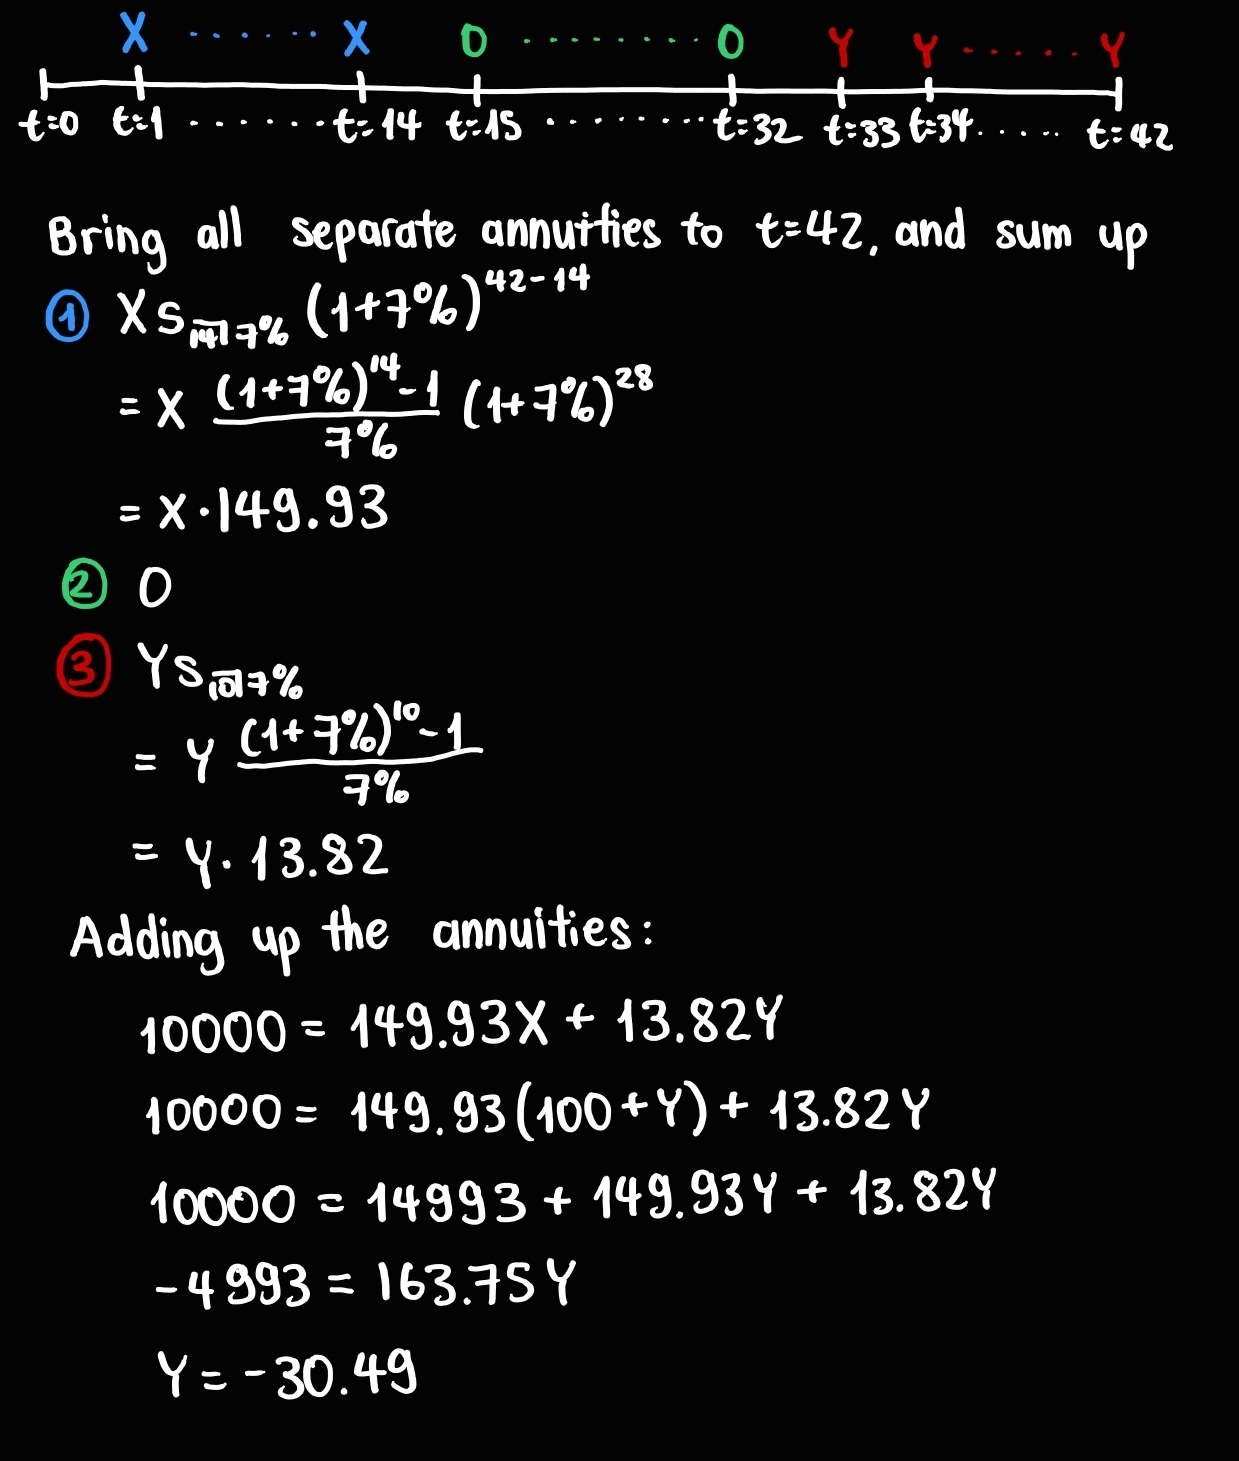 X ....... X O ......... O Y Y ...... Y
t=0 t=1 ....... t=14 t=15 ......... t=32 t=33 t=34 ...... t=42
Bring all separate annuities to t=42, and sum up
① X s_{14|7%} (1+7%)^{42-14}
= X \frac{(1+7%)^{14}-1}{7%} (1+7%)^{28}
= X·149.93
② 0
③ Y s_{10|7%}
= Y \frac{(1+7%)^{10}-1}{7%}
= Y·13.82
Adding up the annuities:
10000 = 149.93X + 13.82Y
10000 = 149.93(100+Y) + 13.82Y
10000 = 14993 + 149.93Y + 13.82Y
-4993 = 163.75Y
Y = -30.49